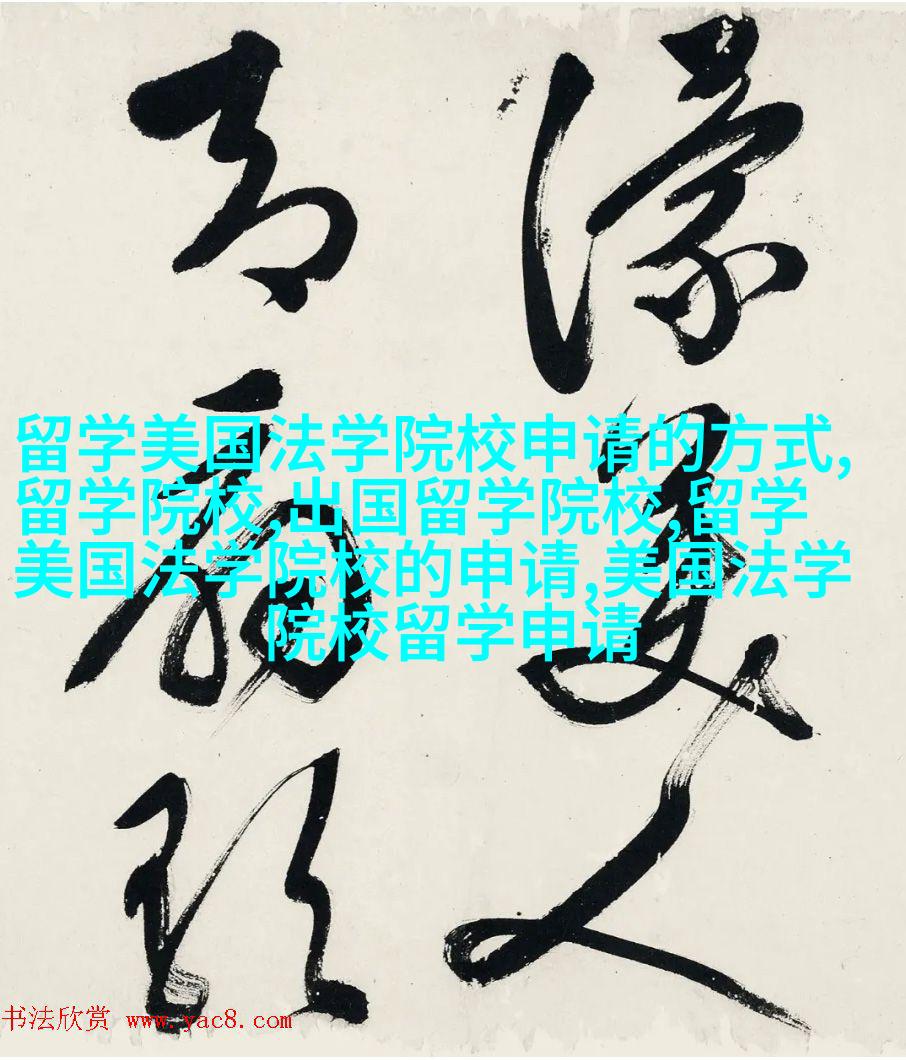 濛美人
留学美国法学院校申请的方式,
留学院校,出国留学院校,留学
美国法学院校的申请,美国法学
院校留学申请
书法欣赏 www.yac8.com